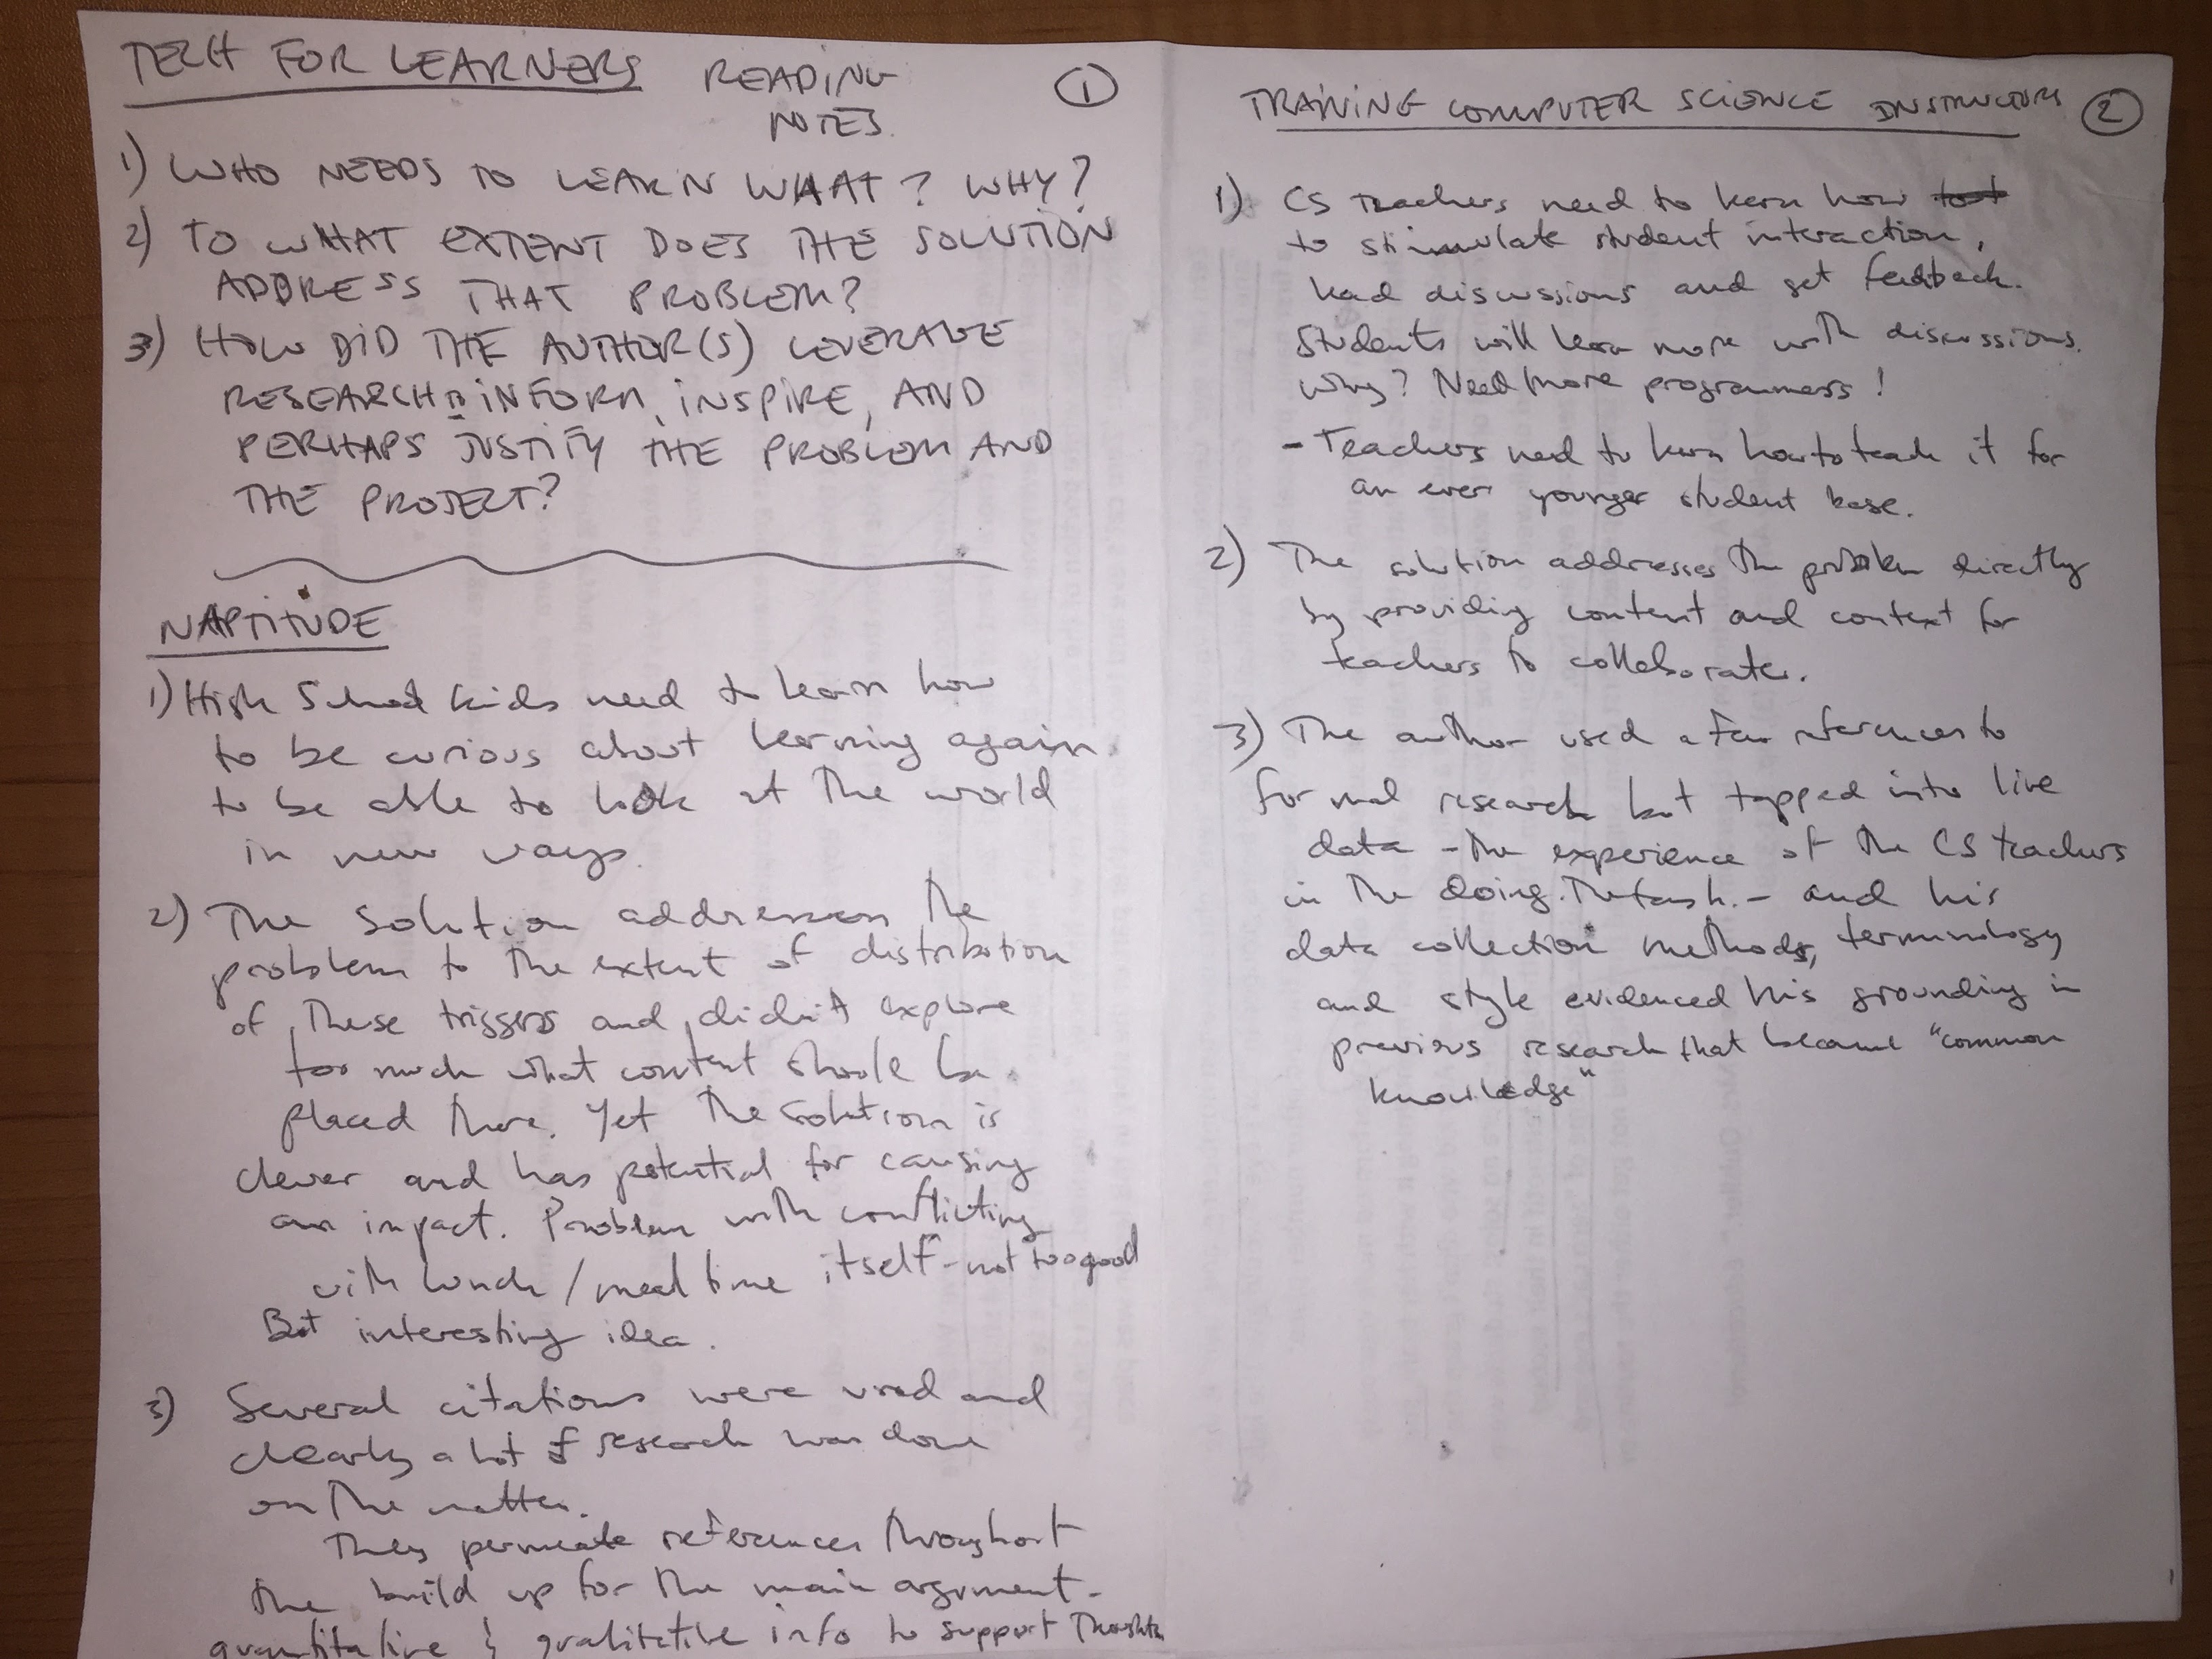 TECH FOR LEARNERS READING
NOTES.
①
1) WHO NEEDS TO LEARN WHAT? WHY?
2) TO WHAT EXTENT DOES THE SOLUTION
ADDRESS THAT PROBLEM?
3) HOW DID THE AUTHOR(S) LEVERAGE
RESEARCH TO INFORM, INSPIRE, AND
PERHAPS JUSTIFY THE PROBLEM AND
THE PROJECT?
NAPTITUDE
1) High School kids need to learn how
to be curious about learning again.
to be able to look at the world
in new ways.
2) The solution addresses the
problem to the extent of distribution
of these triggers and didn't explore
too much what content should be
placed there. Yet the solution is
clever and has potential for causing
an impact. Problem with conflicting
with lunch / meal time itself - not too good
But interesting idea.
3) Several citations were used and
clearly a lot of research was done
on the matter.
They permeate references throughout
the build up for the main argument -
quantitative & qualitative info to support
TRAINING COMPUTER SCIENCE INSTRUCTORS ②
1) CS Teachers need to learn how
to stimulate student interaction,
lead discussions and get feedback.
Students will learn more with discussions.
Why? Need more programmers!
- Teachers need to learn how to teach it for
an ever younger student base.
2) The solution addresses the problem directly
by providing content and context for
teachers to collaborate.
3) The author used a few references to
formal research but tapped into live
data - the experience of the CS teachers
in the doing. - and his
data collection methods, terminology
and style evidenced his grounding in
previous research that became "common
knowledge"